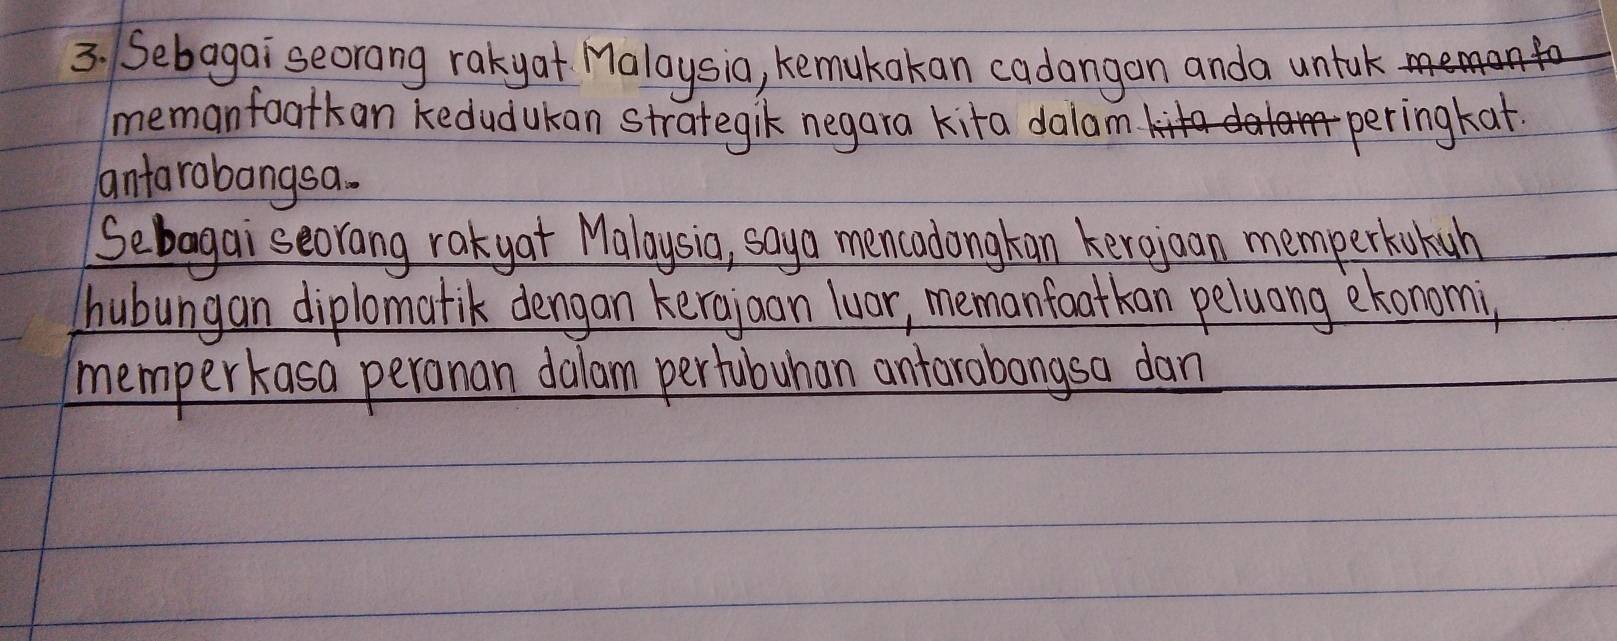 3. Sebagai seorang rakyat Malaysia, kemukakan cadangan anda untuk memanfa
memanfaatkan kedudukan strategik negara kita dalam kita dalam peringkat.
antarabangsa.
Sebagai seorang rakyat Malaysia, saya mencadangkan kerajaan memperkukuh
hubungan diplomatik dengan kerajaan luar, memanfaatkan peluang ekonomi,
memperkasa peranan dalam pertubuhan antarabangsa dan